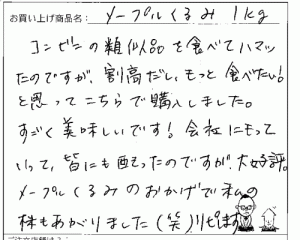 お買い上げ商品名： メープルくるみ 1kg
コンビニの類似品を食べてハマッ
たのですが、割高だし、もっと食べたい！
と思ってこちらで購入しました。
すごく美味しいです！会社にもって
いって、皆にも配ったのですが、大好評。
メープルくるみのおかげで私の
株もあがりました（笑）リピします